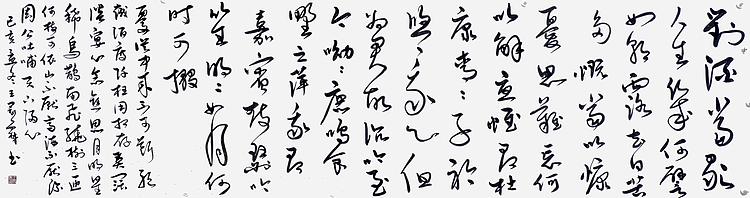 對酒當歌
人生幾何譬
如朝露去日苦
多慨當以慷
憂思難忘何
以解憂唯有杜
康青々子衿
悠々我心但
為君故沉吟至
今呦々鹿鳴食
野之蘋我有
嘉賓鼓瑟吹
笙明々如月何
時可掇
憂從中來不可斷絕
越陌度阡枉用相存契闊
談宴心念舊恩月明星
稀烏鵲南飛繞樹三匝
何枝可依山不厭高海不厭深
周公吐哺天下歸心
己亥年冬王書